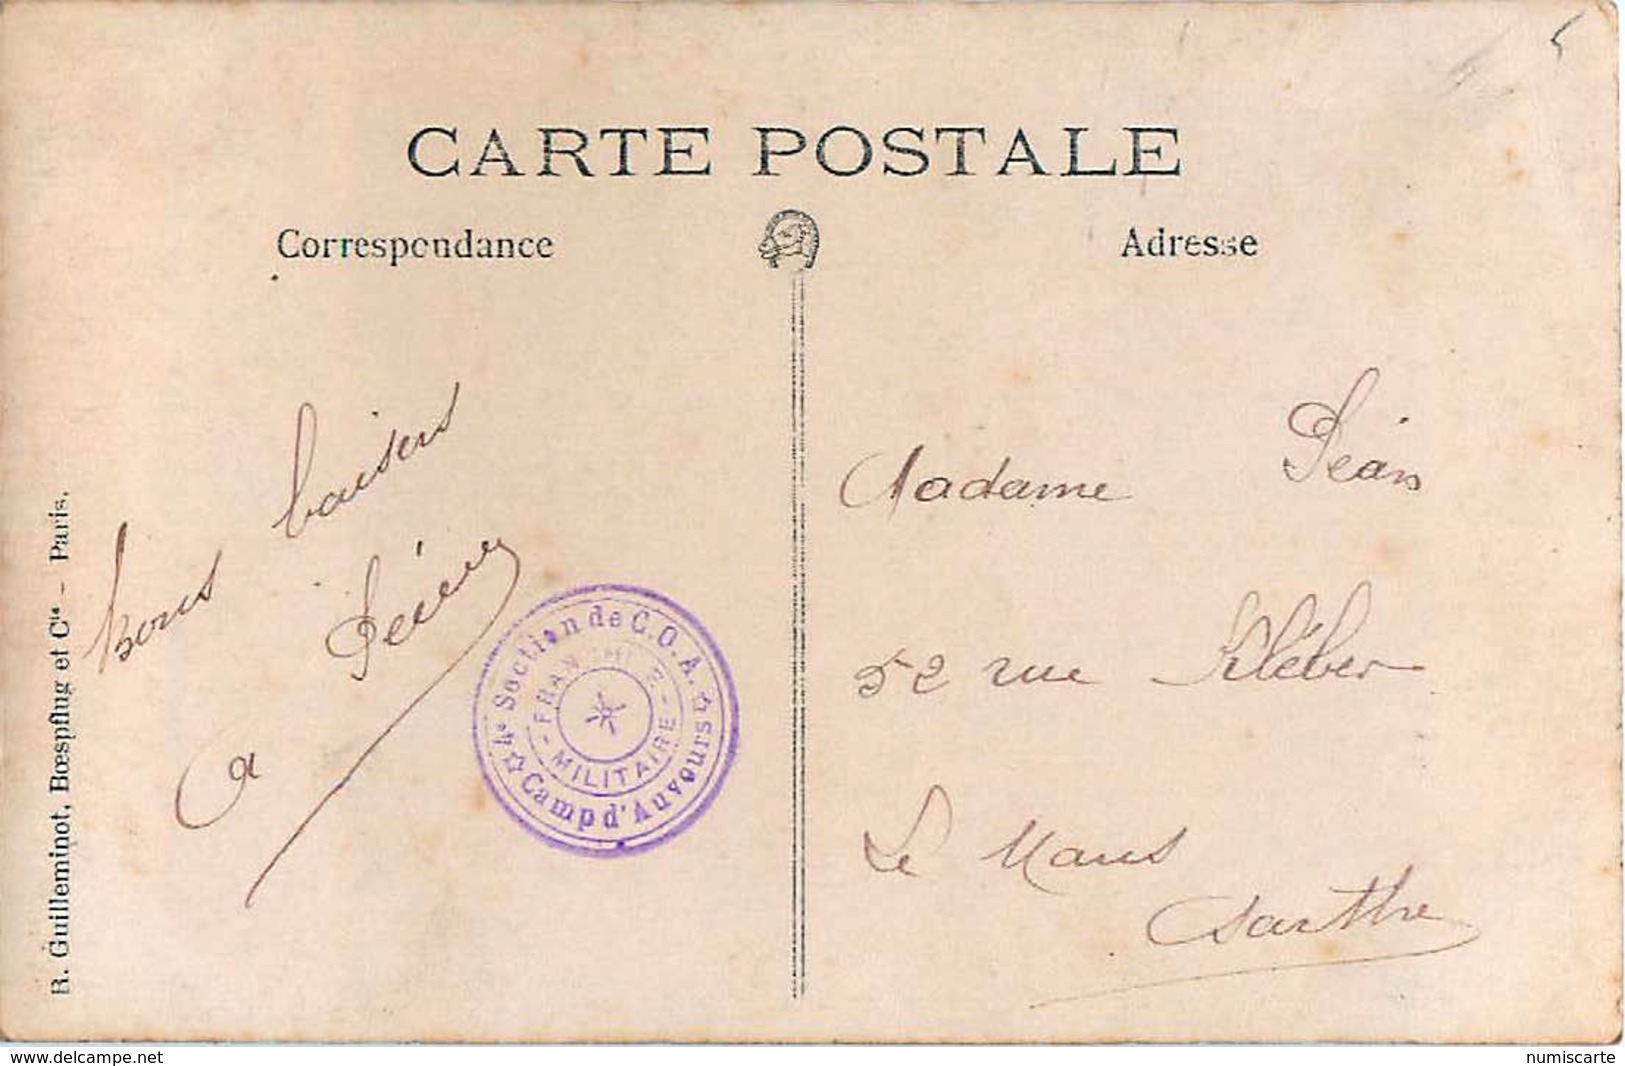 CARTE POSTALE
Correspondance
Adresse
bons baisers
a
Madame
52 rue Kléber
Le Mans
Sarthe
4e Section de C.O.A.
Camp d'Auvours
FRANCHISE
MILITAIRE
R. Guilleminot, Bœspflug et Cie - Paris.
delcampe.net
numiscarte